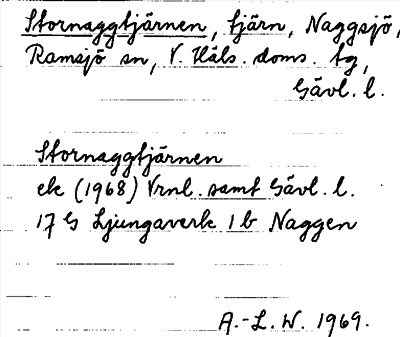 Stornaggtjärnen, tjärn, Naggsjö,
Ramsjö sn, V. Häls. doms. tg,
Gävl. l.
Stornaggtjärnen
ek (1968) Vrnl. samt Gävl. l.
17 G Ljungaverk 1 b Naggen
A.-L. W. 1969.